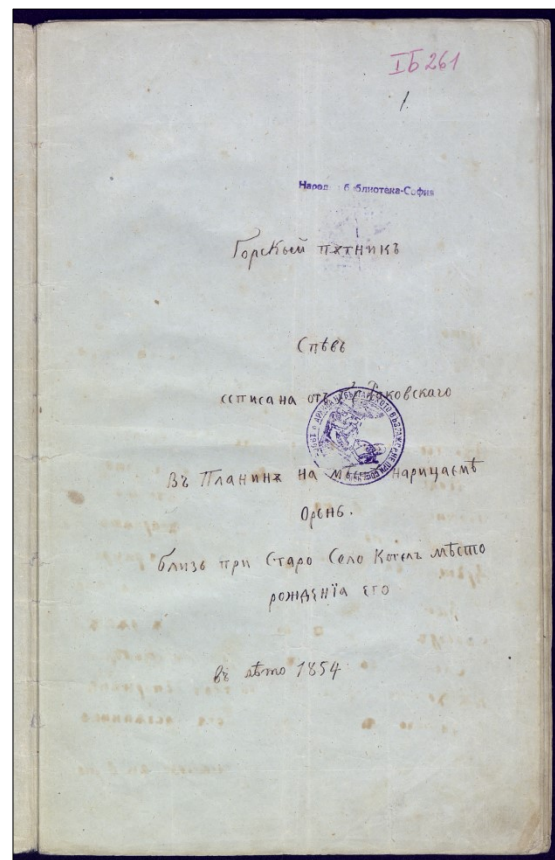 IБ 261
1.
Народ библиотека-София
Горскый пѫтникъ
Спѣвъ
списана отъ Раковскаго
въ Планинѫ на нарицаемѣ
Орѣнь.
близь при Старо Село Котелъ мѣсто
рождѣнїа его
въ лѣто 1854